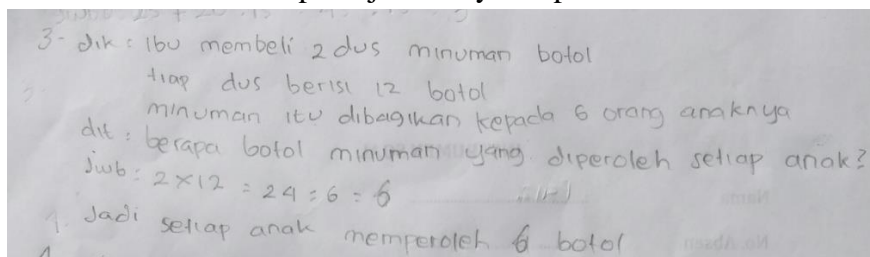 3- dik : Ibu membeli 2 dus minuman botol
tiap dus berisi 12 botol
minuman itu dibagikan kepada 6 orang anaknya
dit : berapa botol minuman yang diperoleh setiap anak?
Jwb : 2 × 12 = 24 : 6 = 6
Jadi setiap anak memperoleh 6 botol